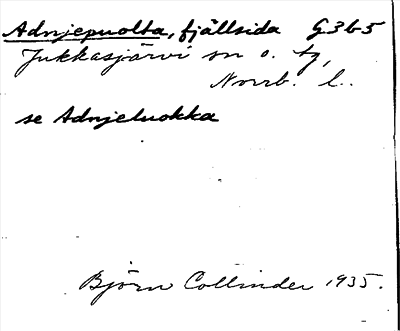 Adnjepuolta, fjällsida G3b5
Jukkasjärvi sn o. tg,
Norrb. l.
se Adnjeluokka
Björn Collinder 1935.